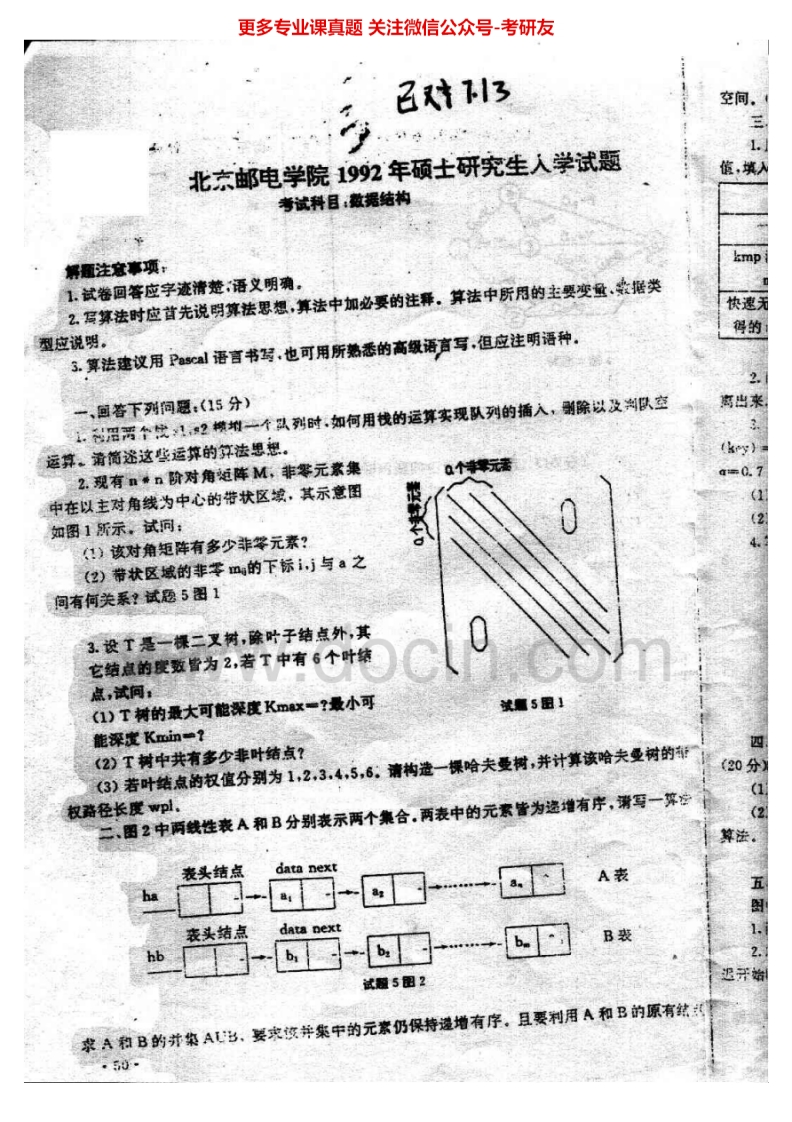 更多专业课真题 关注微信公众号-考研友
已对 7.13
北京邮电学院 1992 年硕士研究生入学试题
考试科目:数据结构
解题注意事项:
1.试卷回答应字迹清楚,语义明确。
2.写算法时应首先说明算法思想,算法中加必要的注释。算法中所用的主要变量、数据类
型应说明。
3.算法建议用 Pascal 语言书写,也可用所熟悉的高级语言写,但应注明语种。
一、回答下列问题:(15 分)
1.利用两个栈 s1,s2 模拟一个队列时,如何用栈的运算实现队列的插入,删除以及判队空
运算。请简述这些运算的算法思想。
2.现有 n*n 阶对角矩阵 M,非零元素集
中在以主对角线为中心的带状区域,其示意图
如图 1 所示。试问:
(1) 该对角矩阵有多少非零元素?
(2) 带状区域的非零 mij的下标 i,j 与 a 之
间有何关系?试题 5 图 1
a个非零元素
a个非零元素
0
0
试题 5 图 1
3.设 T 是一棵二叉树,除叶子结点外,其
它结点的度数皆为 2,若 T 中有 6 个叶结
点,试问:
(1) T 树的最大可能深度 Kmax=?最小可
能深度 Kmin=?
(2) T 树中共有多少非叶结点?
(3) 若叶结点的权值分别为 1,2,3,4,5,6。请构造一棵哈夫曼树,并计算该哈夫曼树的带
权路径长度 wpl。
二、图 2 中两线性表 A 和 B 分别表示两个集合。两表中的元素皆为递增有序,请写一算法
表头结点 data next
ha a1 a2 an ^ A 表
表头结点 data next
hb b1 b2 bm ^ B 表
试题 5 图 2
求 A 和 B 的并集 AUB,要求该并集中的元素仍保持递增有序。且要利用 A 和 B 的原有结点
·50·
空间。
三
1.
值,填入
kmp
快速无
得的
2.
离出来
3.
(key)=
α=0.7
(1)
(2)
4.
四
(20 分)
(1)
(2)
算法。
五
图
1.
2.
迟开始
www.docin.com